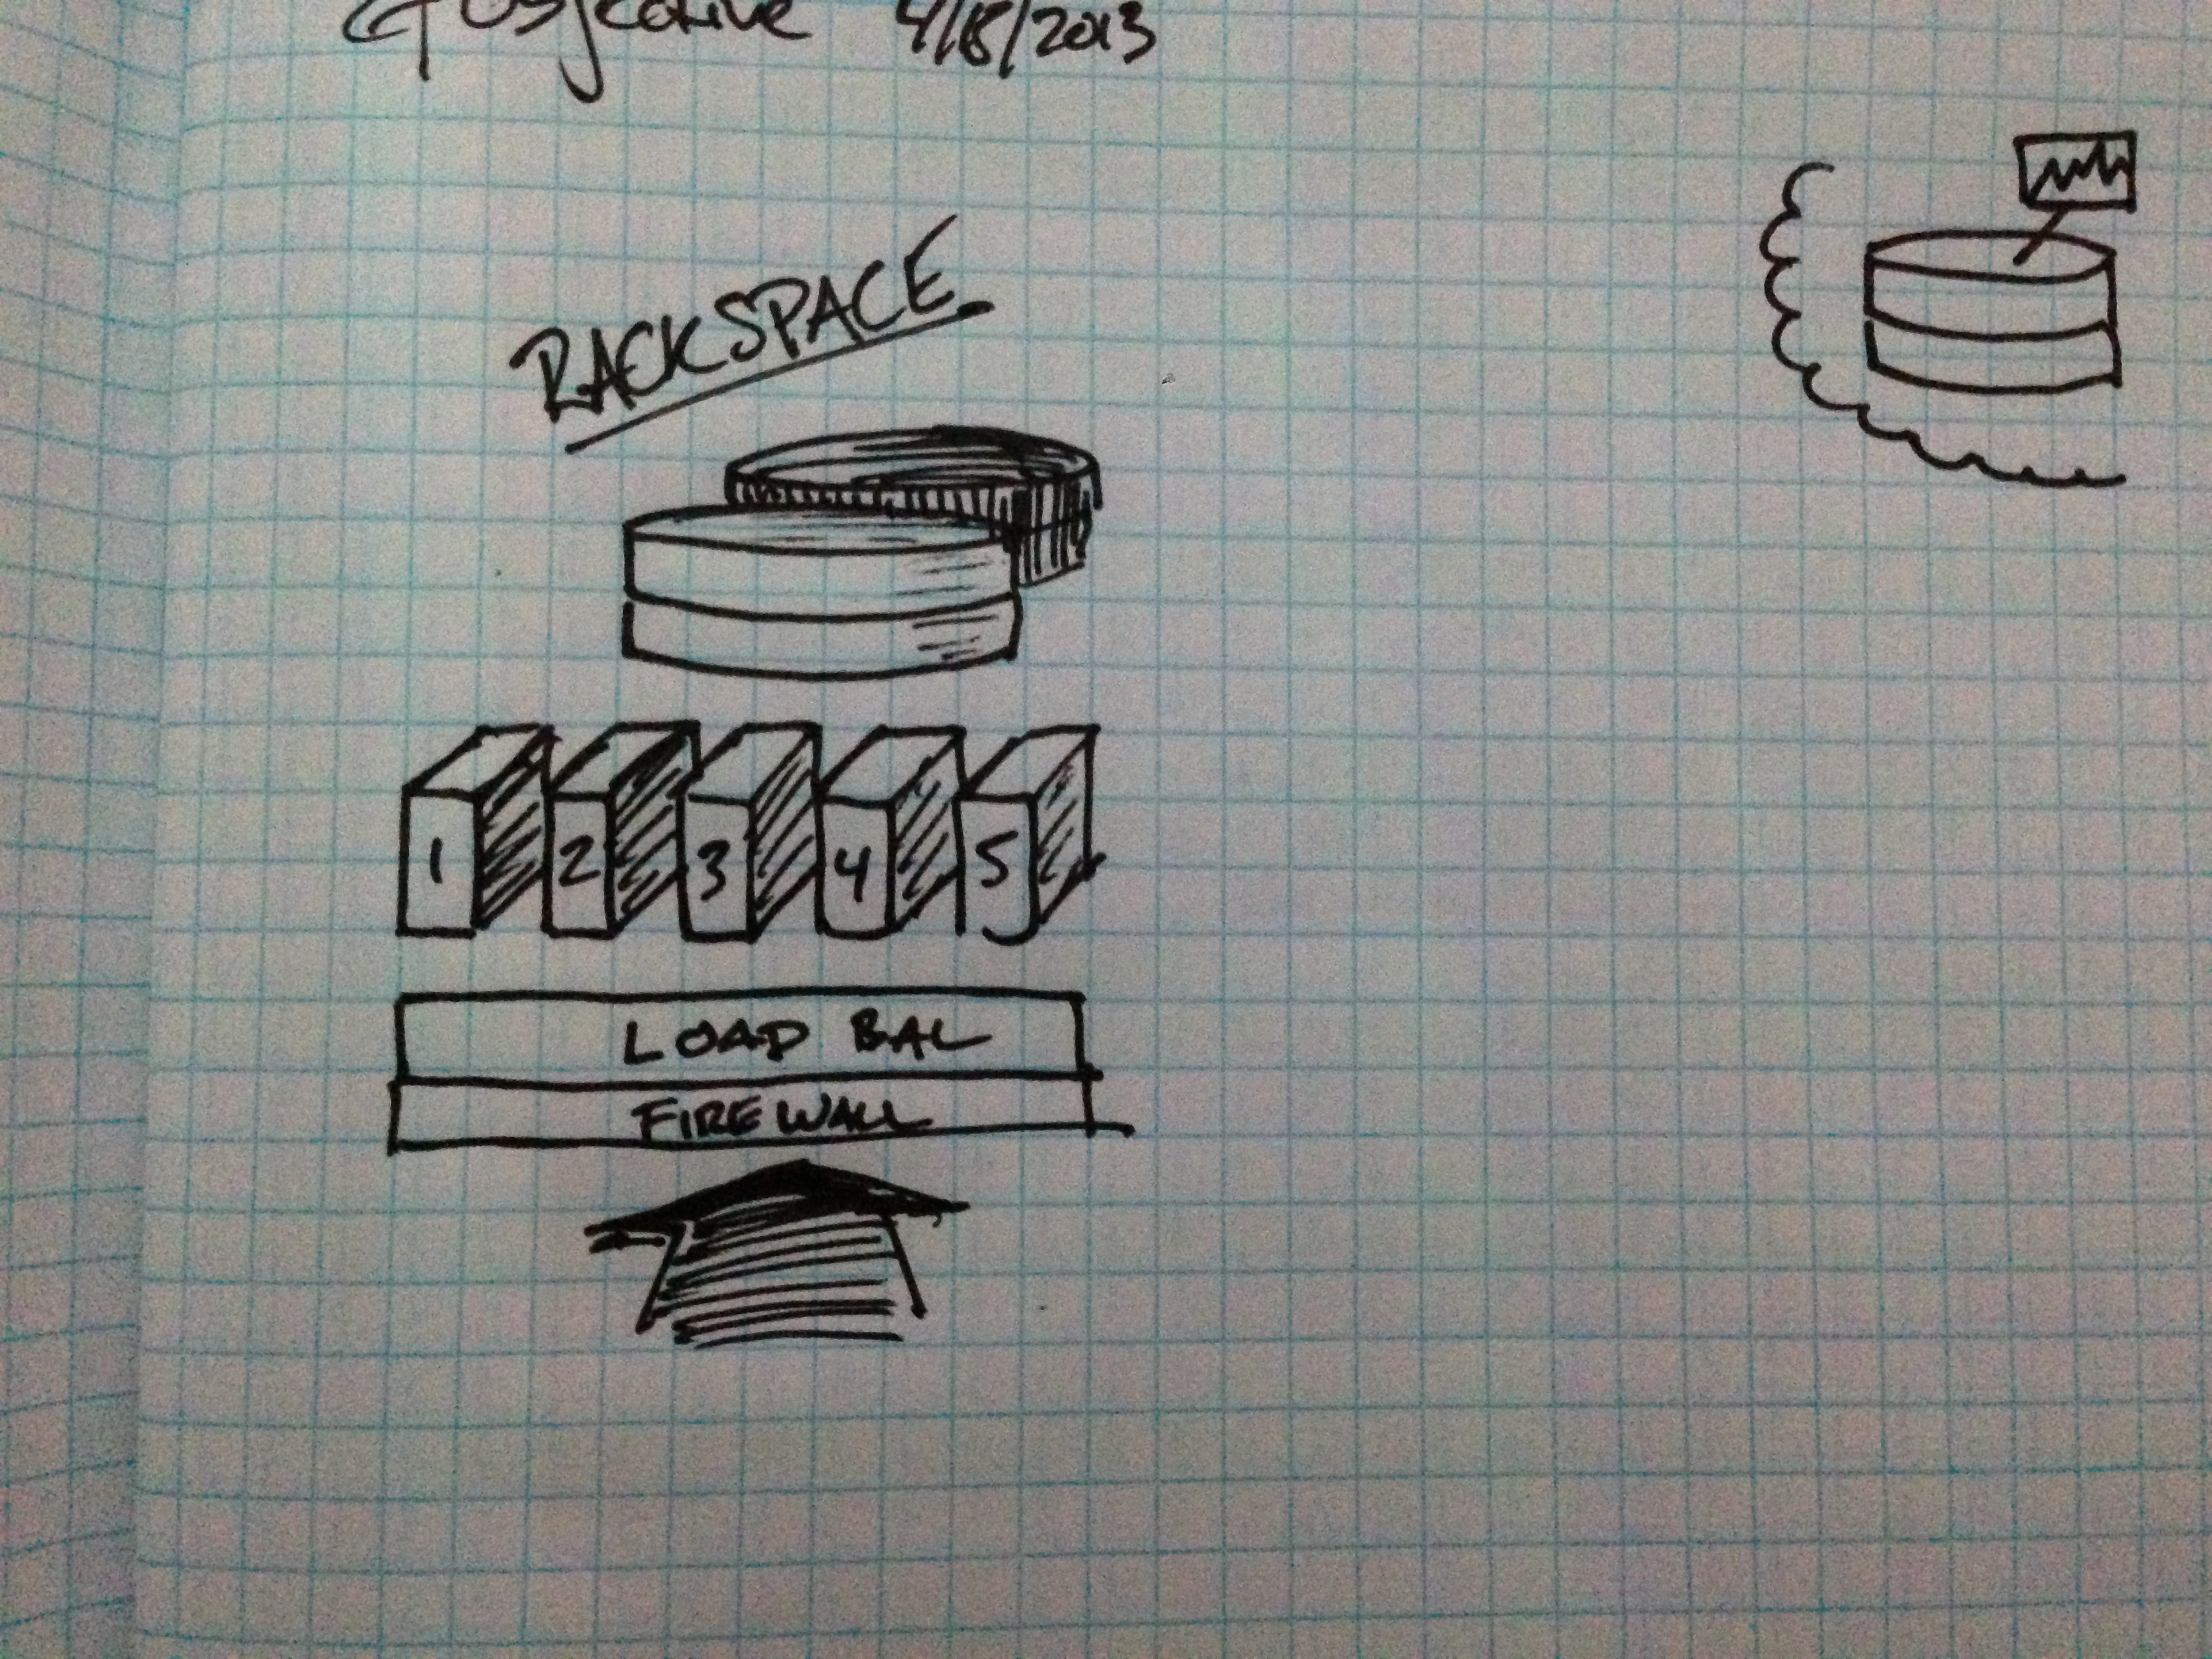 4/18/2013
RACKSPACE
1 2 3 4 5
LOAD BAL
FIREWALL